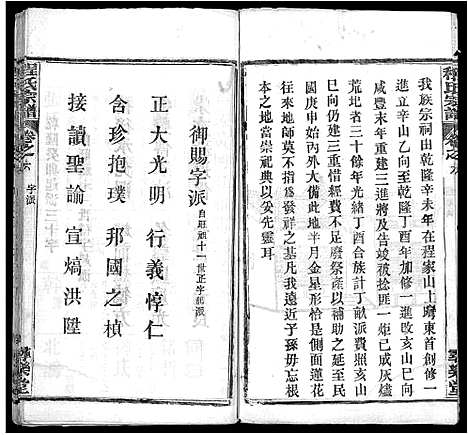 程氏宗譜
我族宗祠由乾隆辛未年在程家山上廳東首創修一
進立辛山乙向至乾隆丁酉年加修一進改亥山巳向
咸豐末年重建三進將及告竣被捻匪一炬已成灰燼
荒圮者三十余年光緒丁酉合族計丁畝派費照亥山
巳向仍建三重惜經費不足廢祭產以成之延至民
國庚申始內外大備此地半月金星形恰是側面蓮花
往來地師莫不指爲發祥之基凡我遠近子孫毋忘根
本之地當崇祀典以妥先靈耳
御賜字派
正大光明 行義惇仁
含珍抱璞 邦國之楨
接讀聖諭 宣熇洪陞
程氏宗譜
卷之六
字派